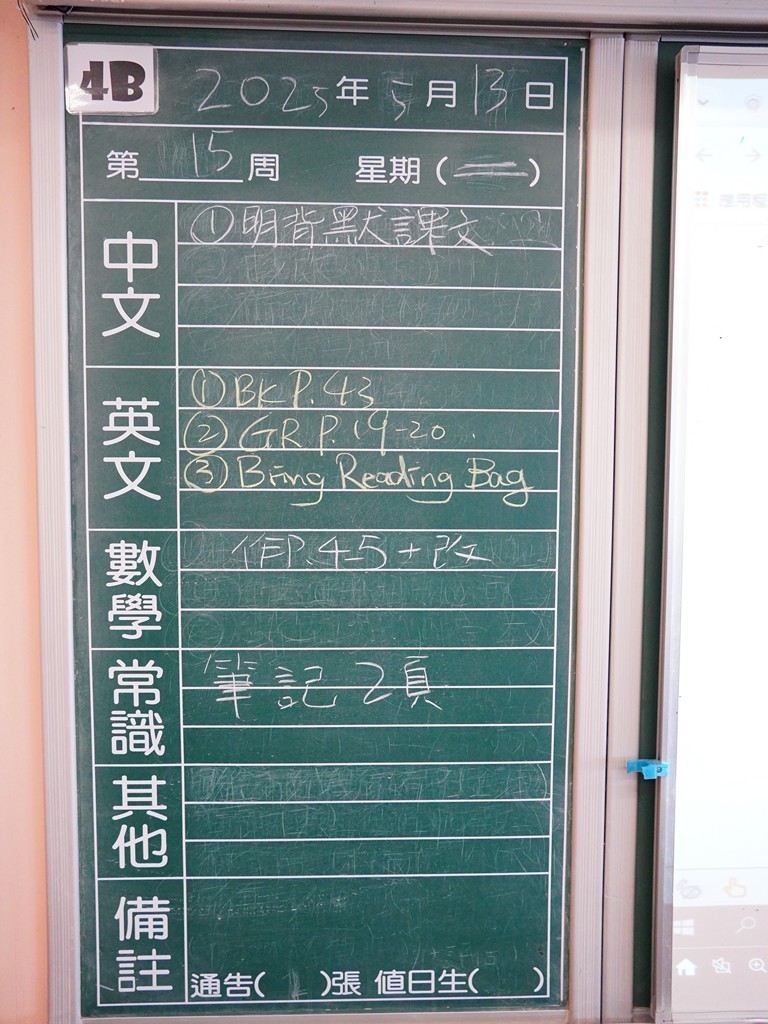 4B
2025年5月13日
第15周 星期(二)
中文
①明背默課文
英文
①BK P.43
②GR P.19-20
③Bring Reading Bag
數學
作P.4-5+改
常識
筆記2頁
其他
備註
通告( )張 值日生( )
應用程